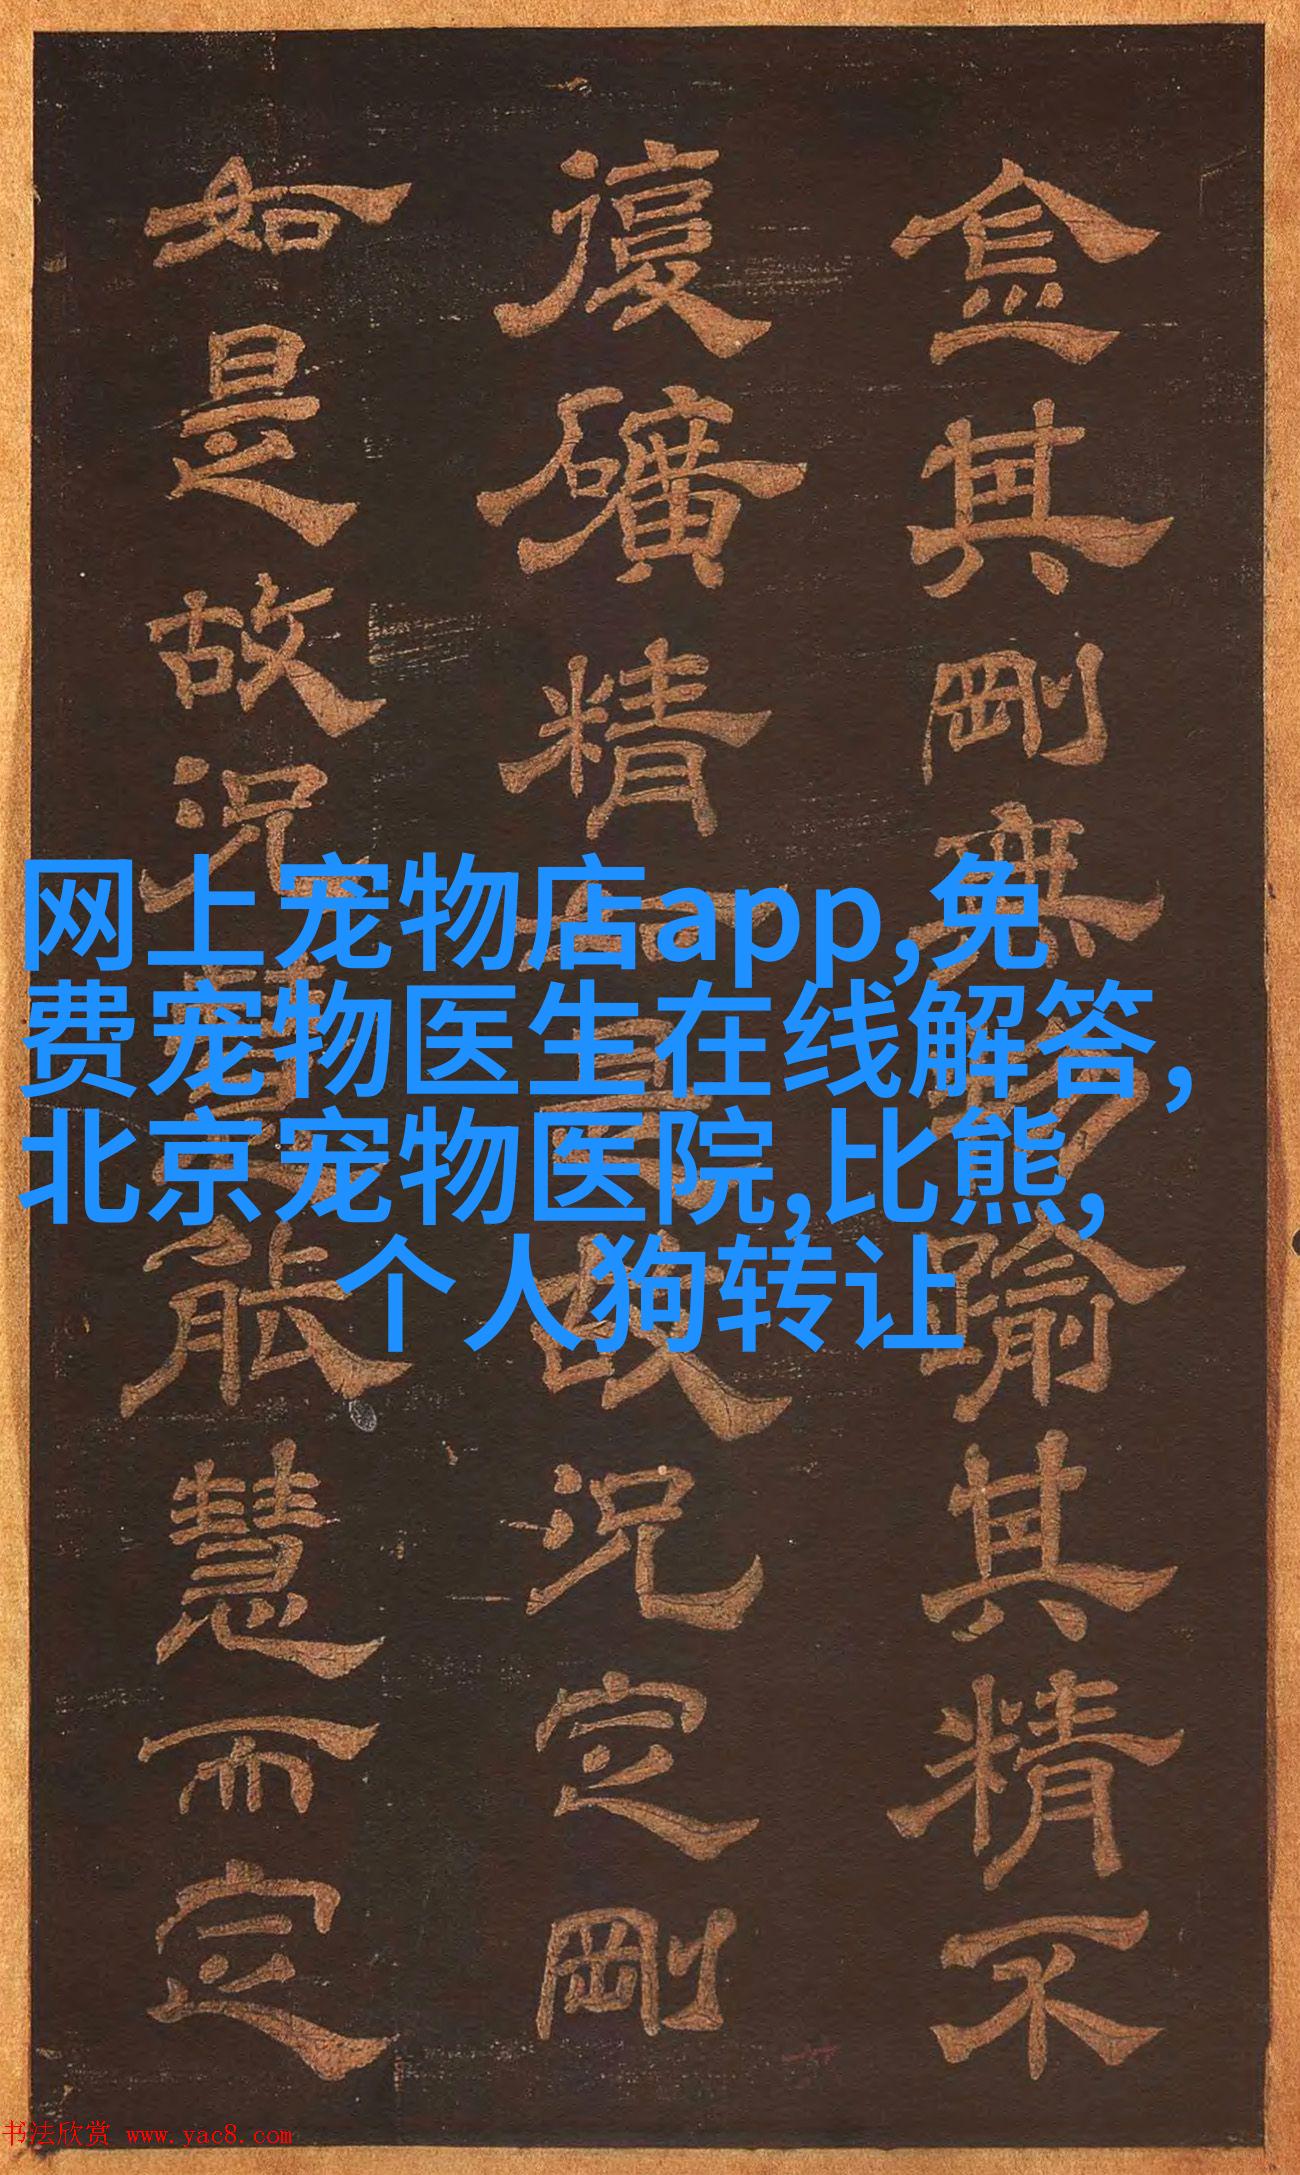 网上宠物店app,免
费宠物医生在线解答,
北京宠物医院,比熊,
个人狗转让
其剛無踰其精不
復礦精故況定剛
如是故況能慧而定
书法欣赏 www.yac8.com